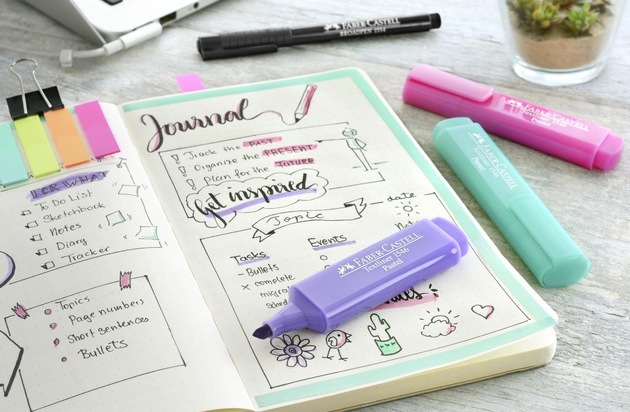 FOR WHAT
To Do List
Sketchbook
Notes
Diary
Tracker
Topics
Page numbers
Short sentences
Bullets
Journal
Track the PAST
Organize the PRESENT
Plan for the FUTURE
Get inspired
Topic
date
Tasks
Events
- Bullets
x complete
FABER-CASTELL
BROADPEN 1554
FABER-CASTELL
Textliner 1546
Pastel
FABER-CASTELL
Textliner 1546
Pastel
FABER-CASTELL
Textliner 1546
Pastel